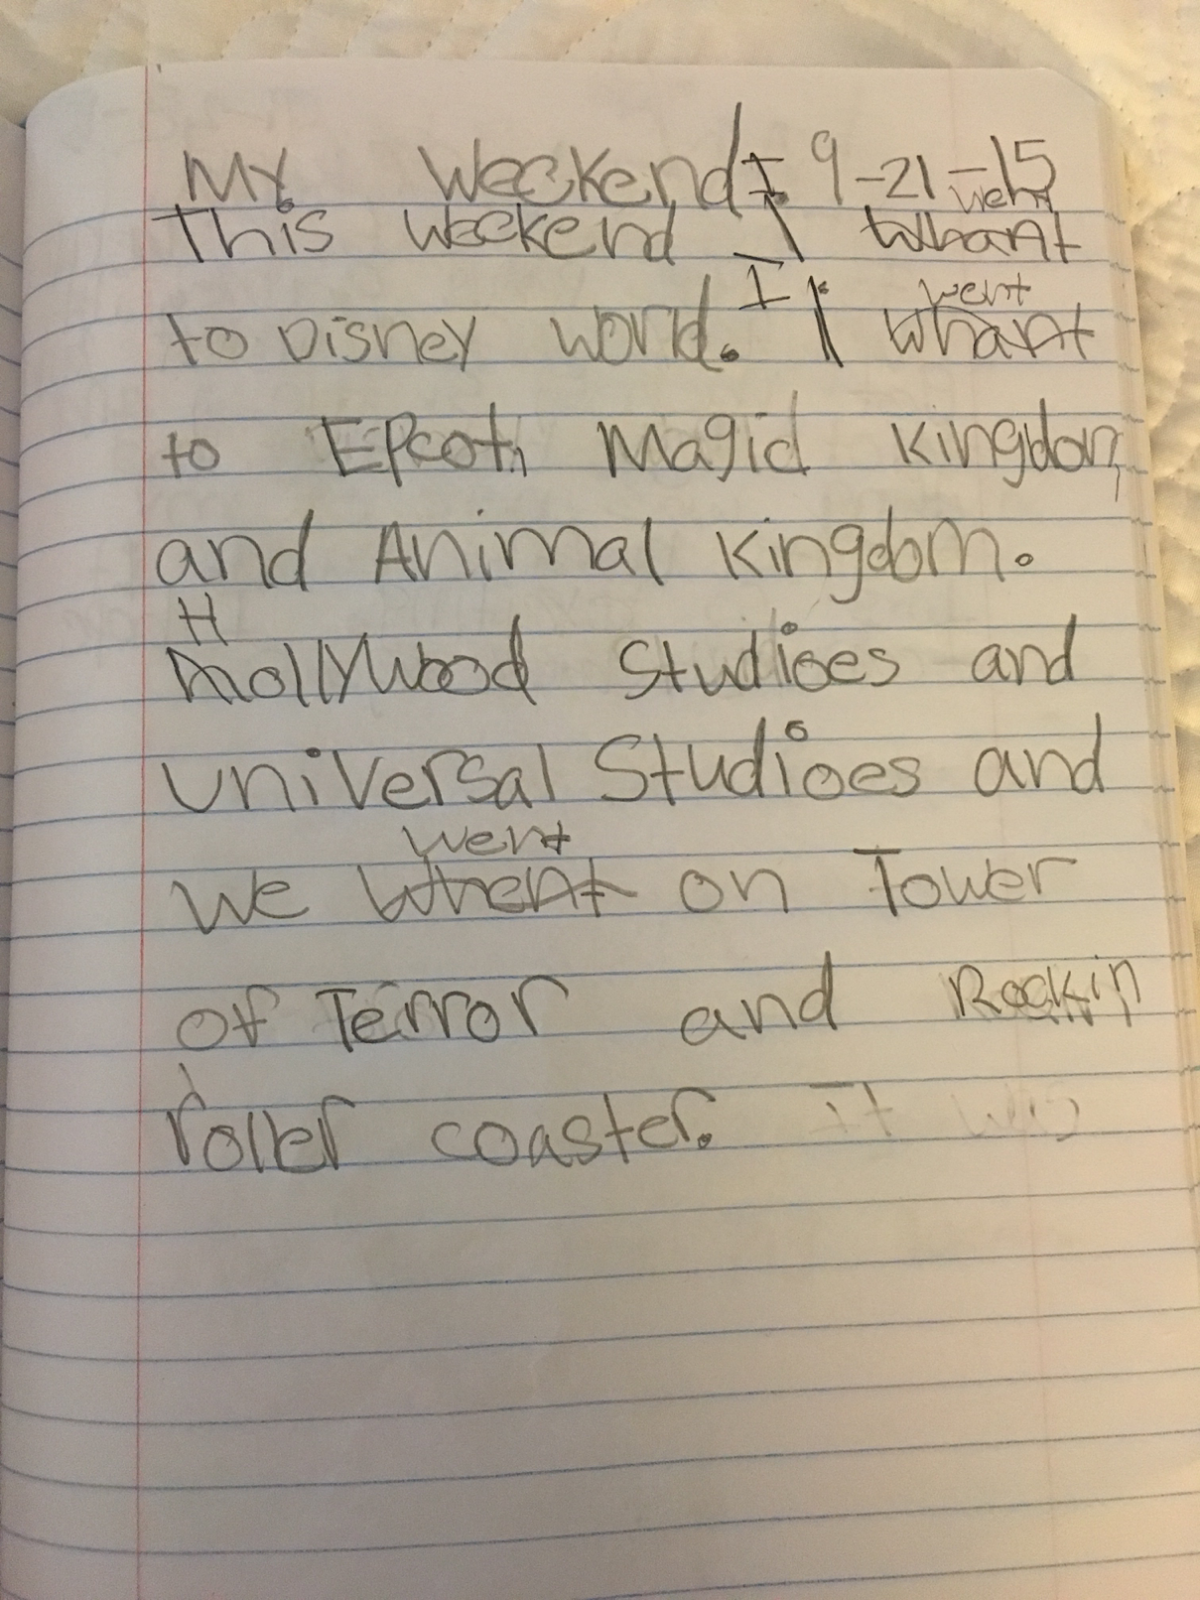 My Weekend I 9-21-15
went
This weekend I whant
I went
to Disney world. I whant
to Epcot, Magid Kingdom,
and Animal Kingdom.
H
hollywood Studioes and
Universal Studioes and
went
we whent on Tower
of Terror and Rockin
roller coaster. It